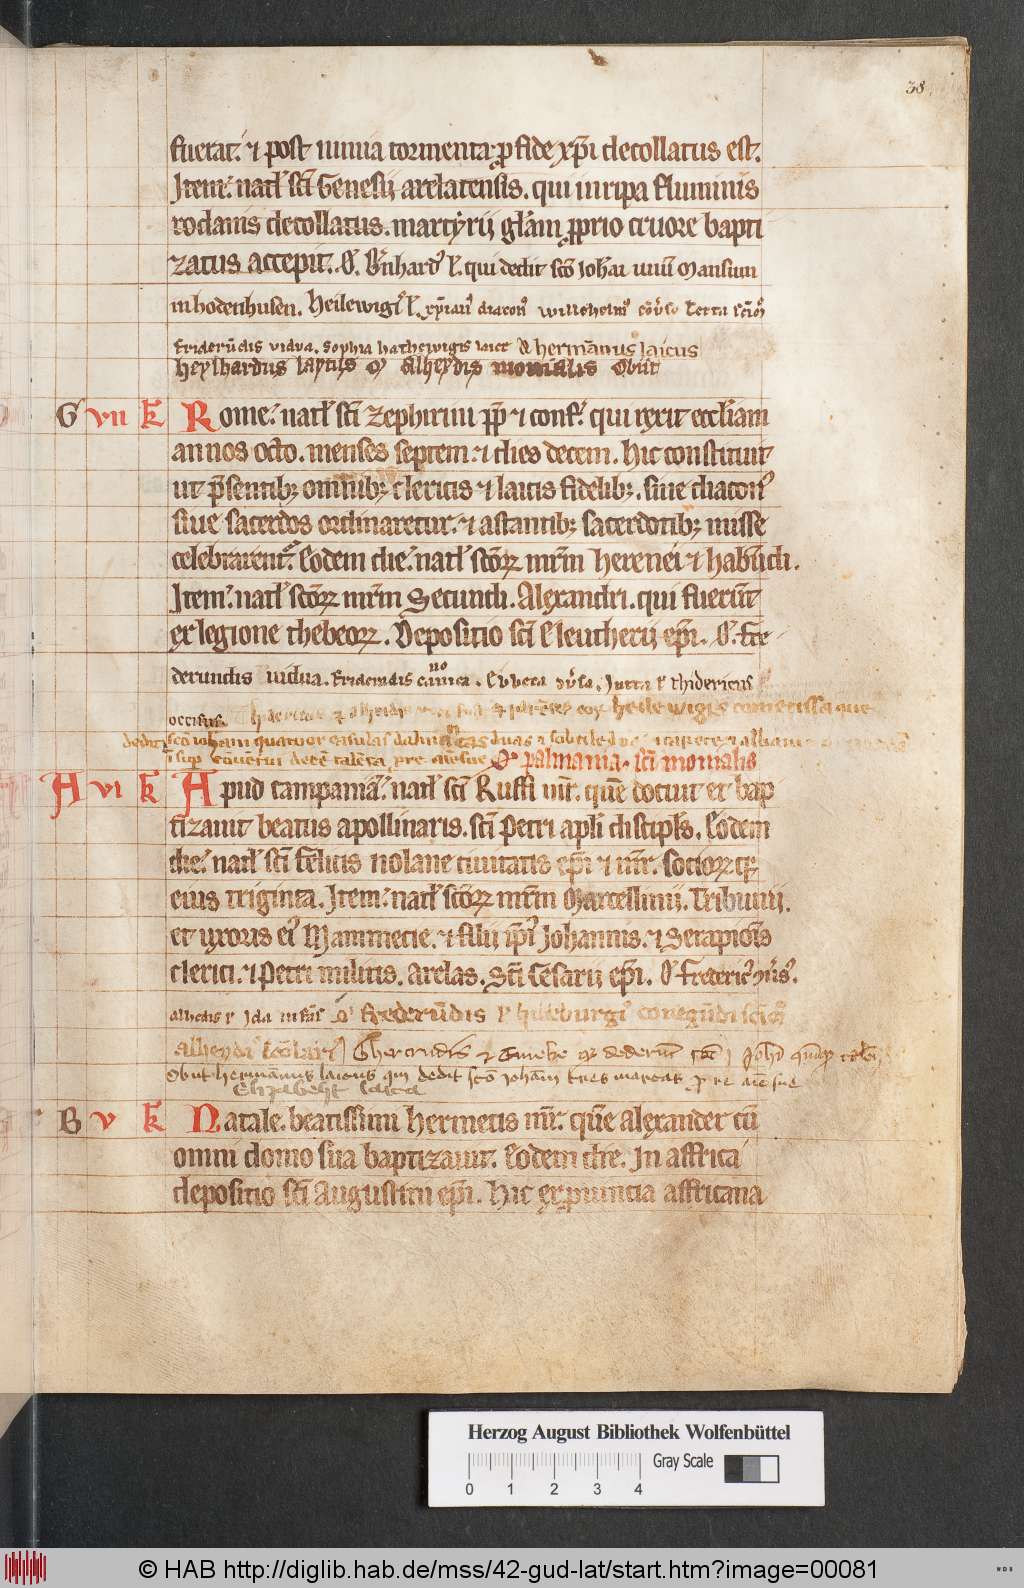 38
fuerat. ⁊ post nimia tormenta p fide xp̄i decollatus est.
Item. natł sc̄i Genesii arelatensis. qui in ripa fluminis
rodanis decollatus. martyrii glāin ꝓprio cruore bapti
zatus accepit. O. Bn̄hard' ł. qui dedit sc̄o Joh̄ai unū mansum
in bodenhusen. Heilewigˀ ł. xp̄ianˀ diaconˀ willehelmˀ
frideru̅dis vidua. Sophia hathewigis hermannus laicus
Heylhardus laycus Alheydis monialis Obiit
G vii k̄ Rome. natł sc̄i Zephirini pp̄ ⁊ conf. qui rexit eccl̄iam
annos octo. menses septem ⁊ dies decem. Hic constituit
ut p̄sentibꝫ omnibꝫ clericis ⁊ laicis fidelibꝫ. siue diaconˀ
siue sacerdos ordinaretur. ⁊ astantibꝫ sacerdotibꝫ misse
celebrarent. Eodem die. natł sc̄oꝝ mr̄m herenei ⁊ habundi.
Item. natł sc̄oꝝ mr̄m Secundi. Alexandri. qui fuerūt
ex legione thebeoꝝ. Depositio sc̄i Eleutherii ep̄i. O. Fre
derundis uidua. Jutta thidericus
occisus. heilewigis cometissa que
dedit sc̄o ioh̄ani quatuor casulas duas
pre aie sue O palmania. sc̄i monialis
A vi k̄ Apud campaniā. natł sc̄i Ruffi mr̄. quē docuit et bap
tizauit beatus apollinaris. sc̄i Petri apl̄i discipłs. Eodem
die. natł sc̄i Felicis nolane ciuitatis ep̄i ⁊ mr̄. socioꝝ qꝫ
eius triginta. Item. natł sc̄oꝝ mr̄m Marcellinii. Tribunii.
et uxoris eiˀ Mammecie. ⁊ filii ip̄iˀ Johannis. ⁊ Serapiōis
clerici. ⁊ Petri militis. Arelas. Sc̄i Cesarii ep̄i. O Fredericˀ
alheidis Ida infās O frederūdis hilleburgˀ conegūdi
alheydˀ scolarˀ Ghertrudis
Obiit hermānus laicus qui dedit sc̄o Joh̄ani tres marcas pro re aīe sue
Elyzabeht laica
B v k̄ Natale. beatissimi Hermetis mr̄. quē alexander cū
omni domo sua baptizauit. Eodem die. In affrica
depositio sc̄i Augustini ep̄i. Hic ex ꝓuincia affricana
Herzog August Bibliothek Wolfenbüttel
Gray Scale
0 1 2 3 4
© HAB http://diglib.hab.de/mss/42-gud-lat/start.htm?image=00081